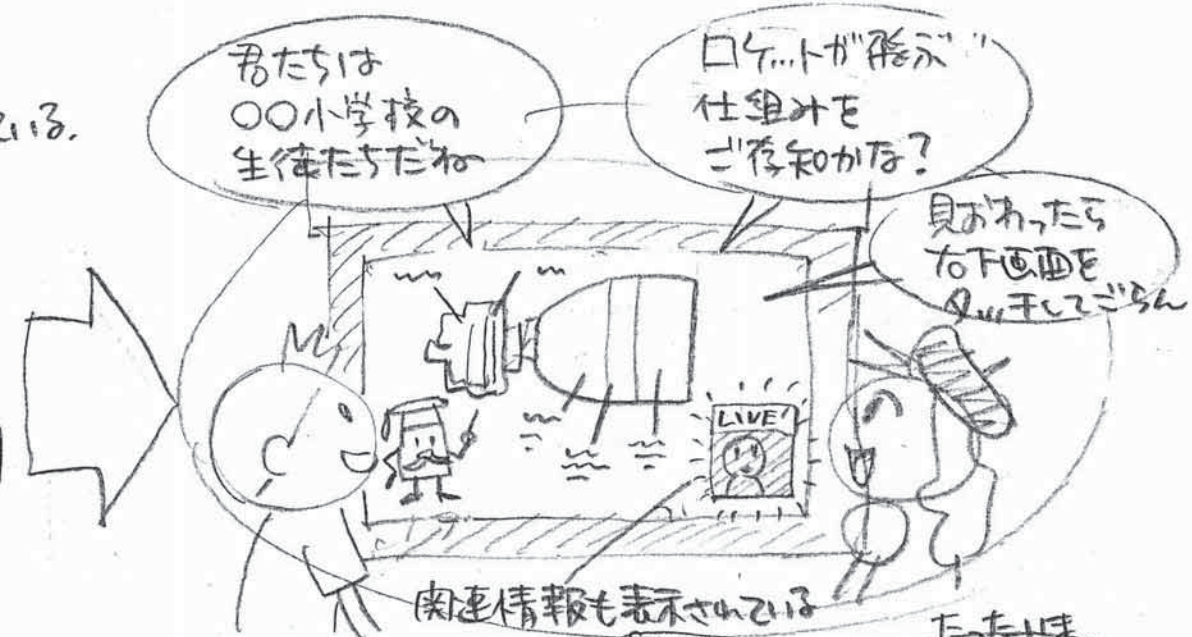 いる.
君たちは
○○小学校の
生徒たちだね
ロケットが飛ぶ
仕組みを
ご存知かな？
見おわったら
右下画面を
タッチしてごらん
LIVE!
関連情報も表示されている
たった今